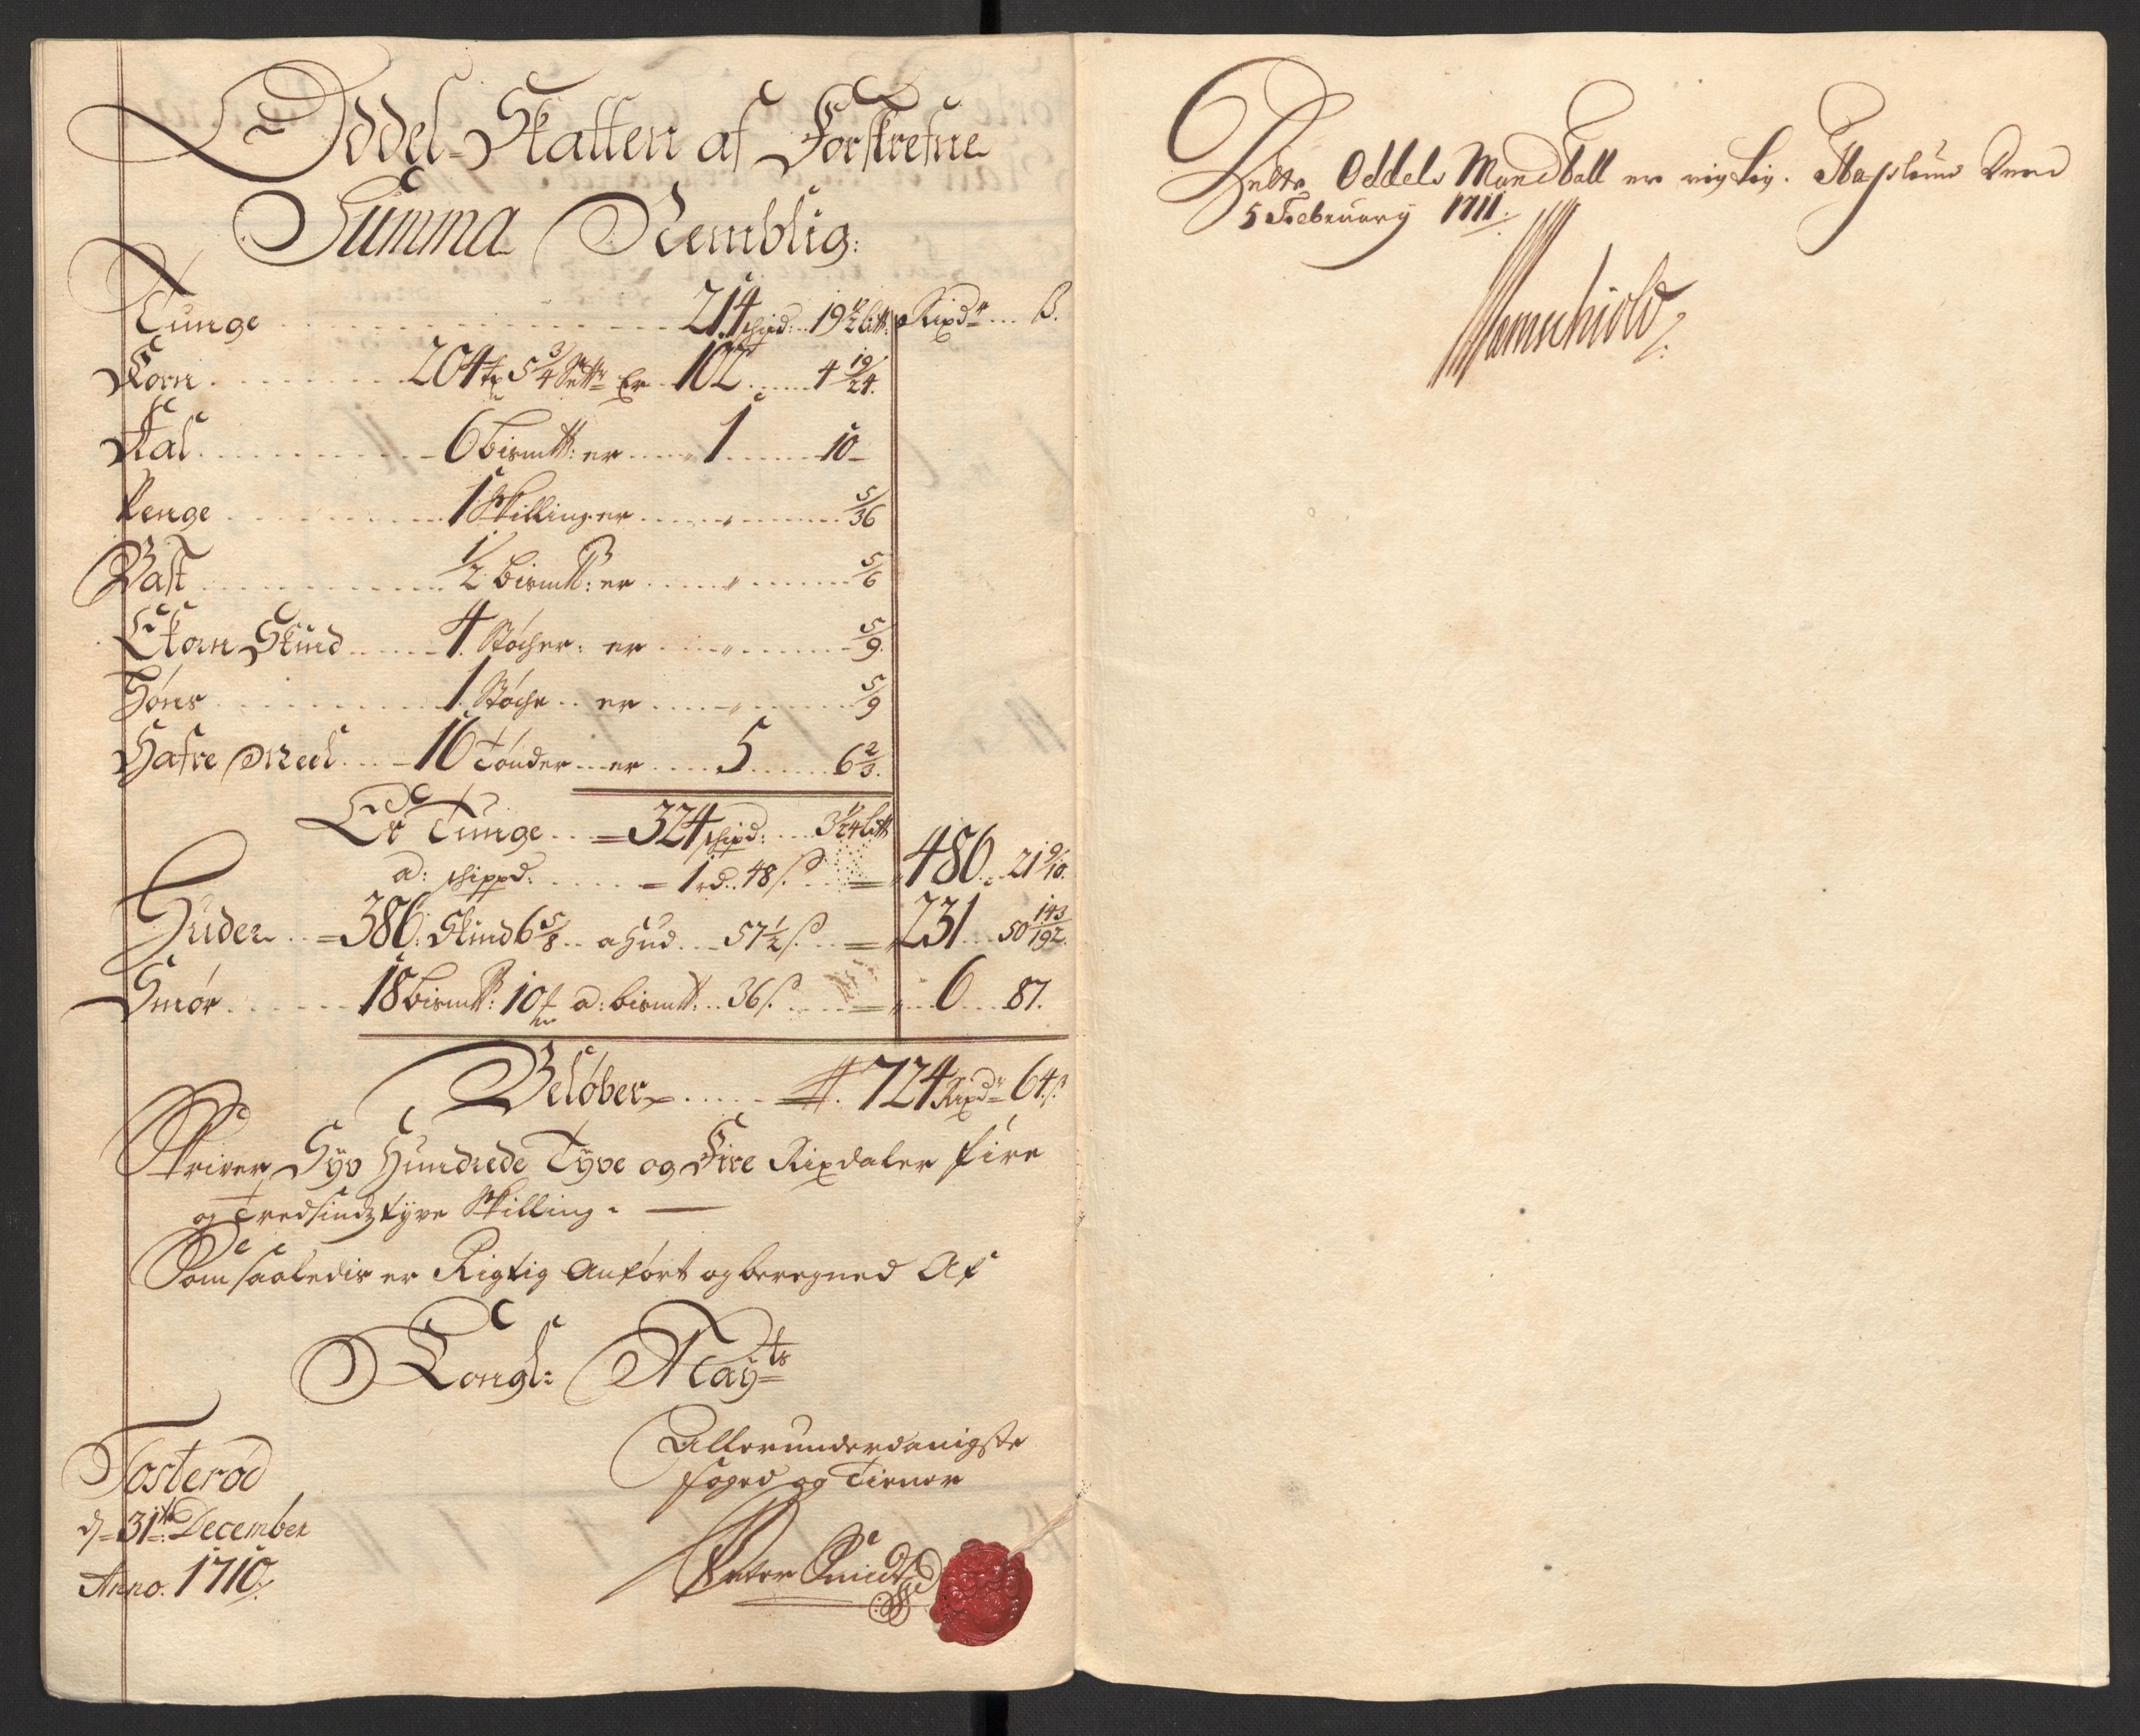 Oddel-Skatten af Forskrefne
Summa Nemblig:
Tunge 214 schipd: 19 1/2 lit: Rixdr ß.
Korn 204 tr 5 3/4 Settr Er 102 4 19/24.
Kal 6 bismtt: er 1 10
Penge 1 Skilling er " 5/36
Bast 1/2 bismtt: er " 5/6
Ekorn Skind 4 Støcher: er " 5/9.
Høns 1 Støche er " 5/9
Hafre Meel 16 Tønder er 5 6 2/3.
Er Tunge = 324 schipd: 3 1/24 litt
a: schippd. = 1 rd. 48 s. = 486. 21 9/10.
Huder = 386: Skind 6 5/8 a Hud 57 1/2 s. = 231 50 143/192.
Smør 18 bismtt: 10 a: bismtt: 36 s. = 6 87.
Beløber 724 Rixdr 64 s
Skriver Syv Hundrede Tyve og Fire Rixdaler fire
og Tredsindztyve Skilling. —
Som saaledis er Rigtig Anført og beregned Af
Kongl: Mayts
Allerunderdanigste
foged og Tiener
Tosterød
d= 31te December
Anno. 1710.
Peter Smidt
Dette Oddels Mandtall er rigtig. Dend
5 February 1711.